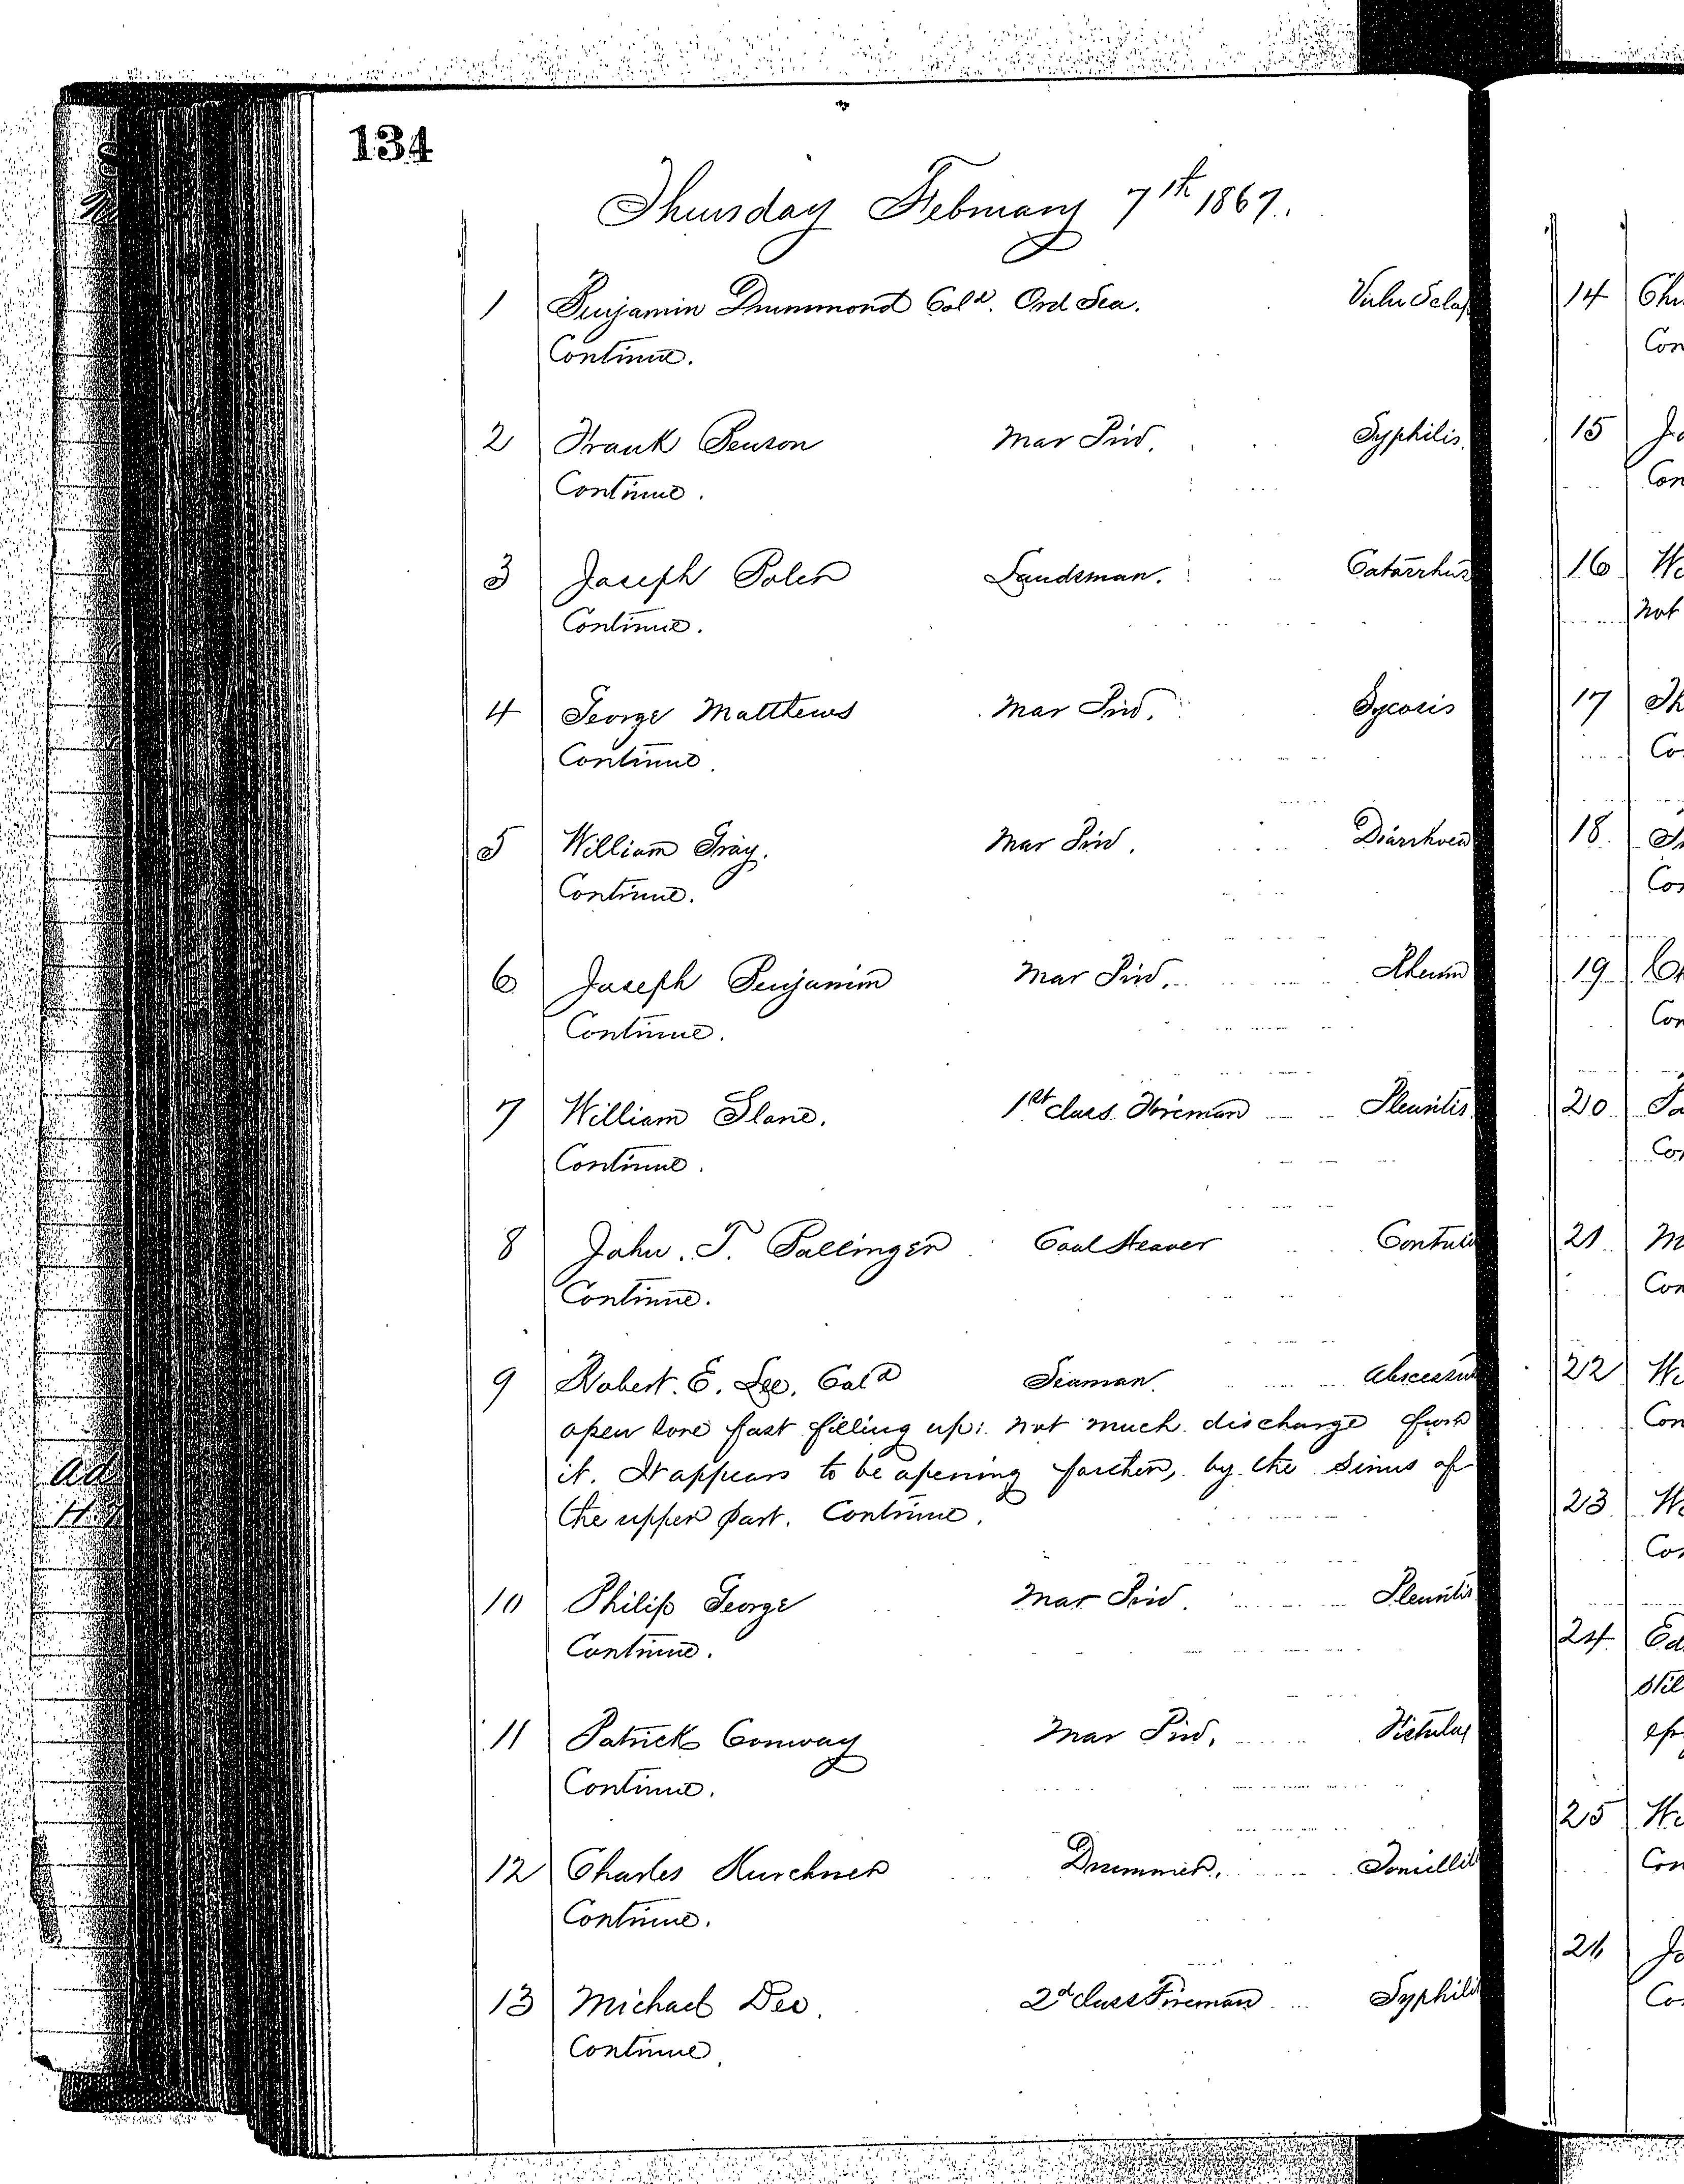 134
Thursday February 7th 1867.
1 Benjamin Drummond Cold. Ord Sea. Vuln Sclop
Continue.
2 Frank Benson Mar Priv. Syphilis.
Continue.
3 Joseph Landsman. Catarrhus
Continue.
4 George Matthews Mar Priv. Sycosis
Continue.
5 William Gray. Mar Priv. Diarrhoea
Continue.
6 Joseph Benjamin Mar Priv. Rheum
Continue.
7 William Slane. 1st class Fireman Pleuritis
Continue.
8 John. T. Ballinger Coal Heaver Contusi
Continue.
9 Robert. E. Lee. Cold Seaman. Abscessus
open sore fast filling up: not much discharge from
it. It appears to be opening farther, by the Sinus of
the upper part. Continue.
10 Philip George Mar Priv. Pleuritis
Continue.
11 Patrick Conway Mar Priv. Fistula
Continue.
12 Charles Kurchner Drummer. Tonsillit
Continue.
13 Michael Dee. 2d class Fireman Syphilis
Continue.
14
Con
15
Con
16
not
17
Co
18
Con
19
Con
20
Con
21
Con
22
Con
23
Con
24 Ed
25
Con
26
Co